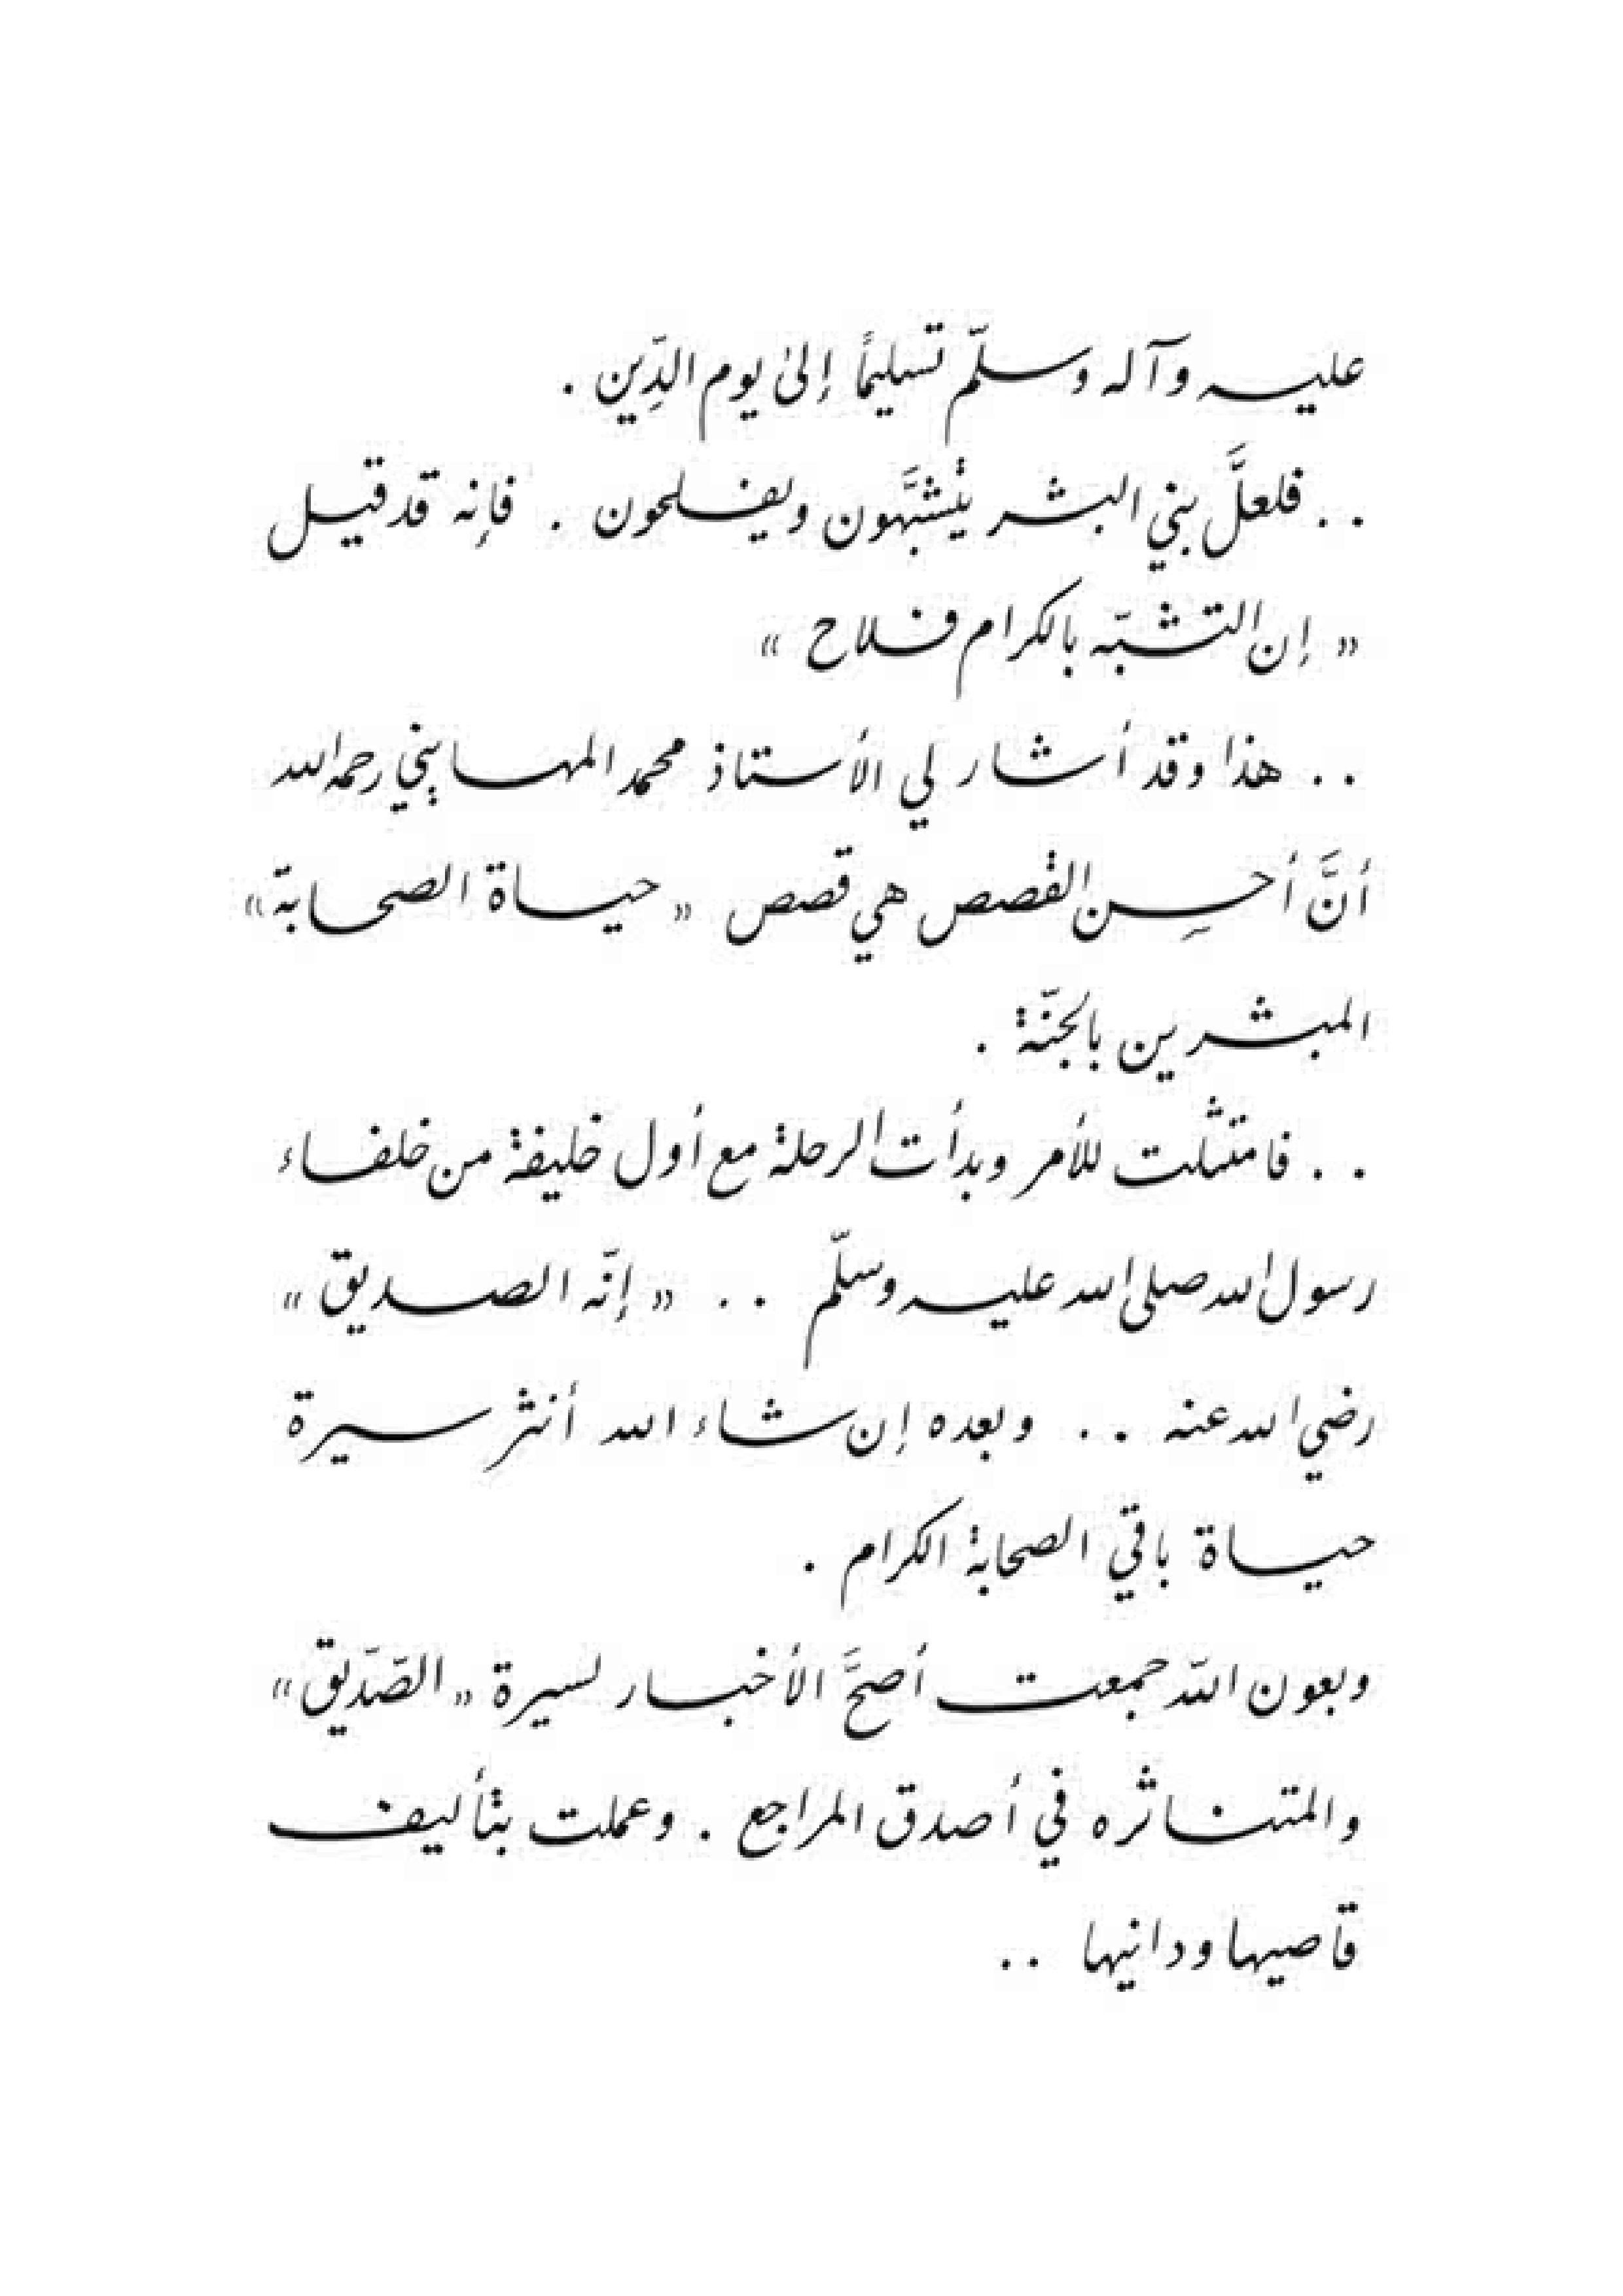 عليه وآله وسلّم تسليمًا إلىٰ يوم الدِّين .
. . فلعلَّ بني البشر يتشبَّهون ويفلحون . فإنه قد قيل
« إن التشبّه بالكرام فلاح »
. . هذا وقد أشار لي الأستاذ محمد المهايني رحمه الله
أنَّ أحسِن القصص هي قصص « حياة الصحابة »
المبشرين بالجنّة .
. . فامتثلت للأمر وبدأت الرحلة مع أول خليفة من خلفاء
رسول الله صلى الله عليه وسلّم . . « إنّه الصديق »
رضي الله عنه . . وبعده إن شاء الله أنثر سيرة
حياة باقي الصحابة الكرام .
وبعون اللّه جمعت أصحَّ الأخبار لسيرة « الصّدّيق »
والمتناثره في أصدق المراجع . وعملت بتأليف
قاصيها ودانيها . .